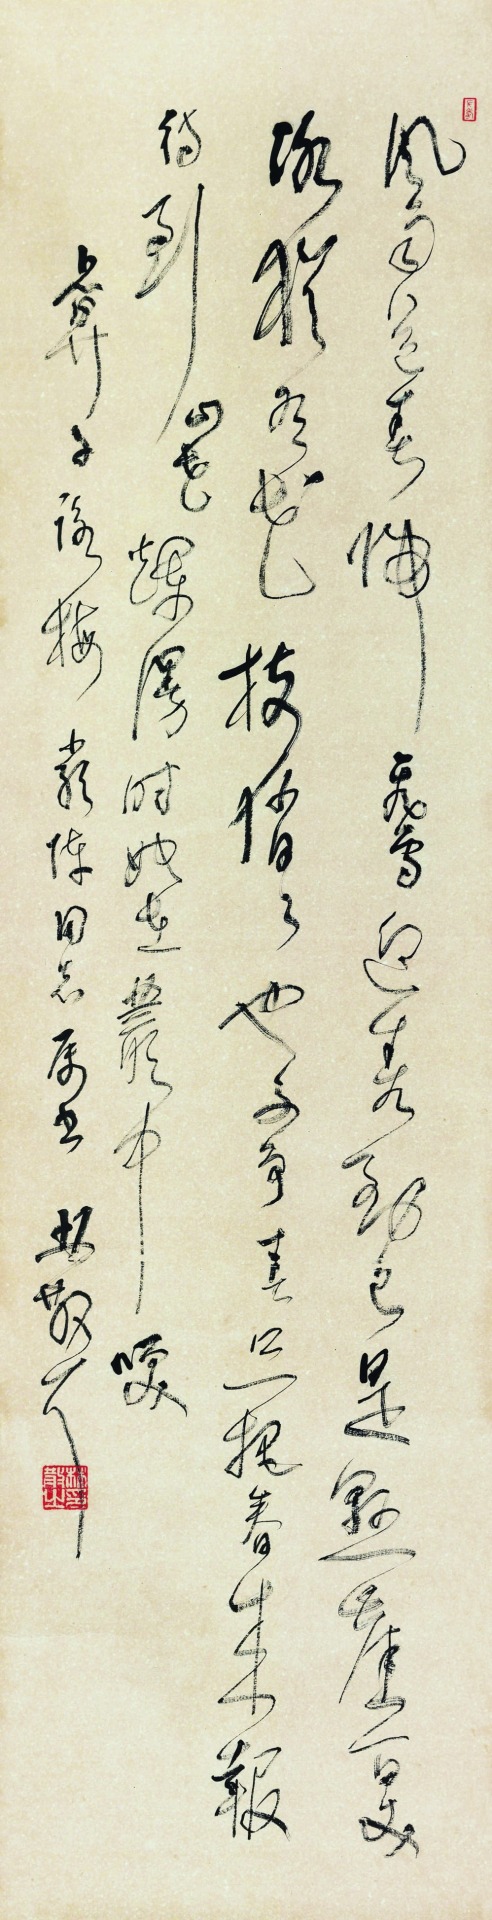 風雨送春歸飛雪迎春到已是懸崖百丈
冰猶有花枝俏々也不爭春只把春來報
待到山花爛漫時她在叢中笑
卜算子詠梅 嚴陣同志屬書 林散耳